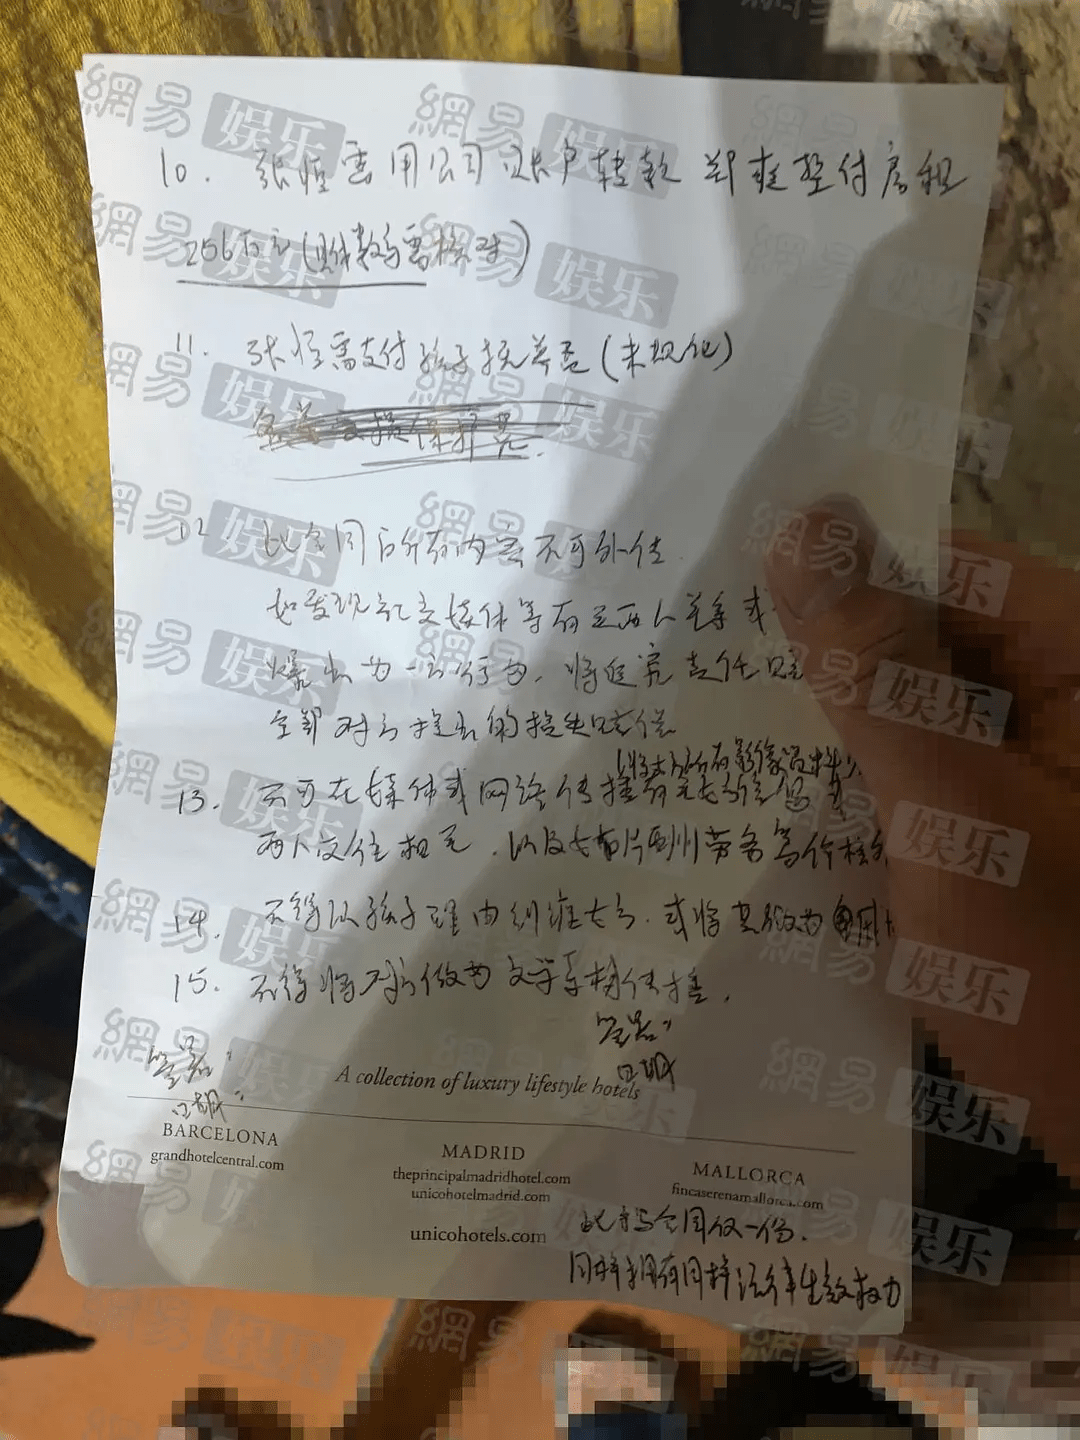 10. 张恒需用公司账户转款 郑爽垫付房租
256万元(具体数字需核对)
11. 张恒需支付孩子抚养否(未规化)
12 此合同所有内容不可外传.
如发现 媒体等有关两人关系或
爆出为一切行为, 将追究责任
全部 对方提出的损失赔偿
13. 不可在媒体或网络传播
两人交往相关, 以及
14. 不得以孩子理由纠缠女方. 或将其
15. 不得将对方做为文学素材传播.
签署:
签署:
A collection of luxury lifestyle hotels
BARCELONA
grandhotelcentral.com
MADRID
theprincipalmadridhotel.com
unicohotelmadrid.com
MALLORCA
fincaserenamallorca.com
unicohotels.com
此手写合同仅一份.
同样拥有同样法律生效权力
網易娱乐